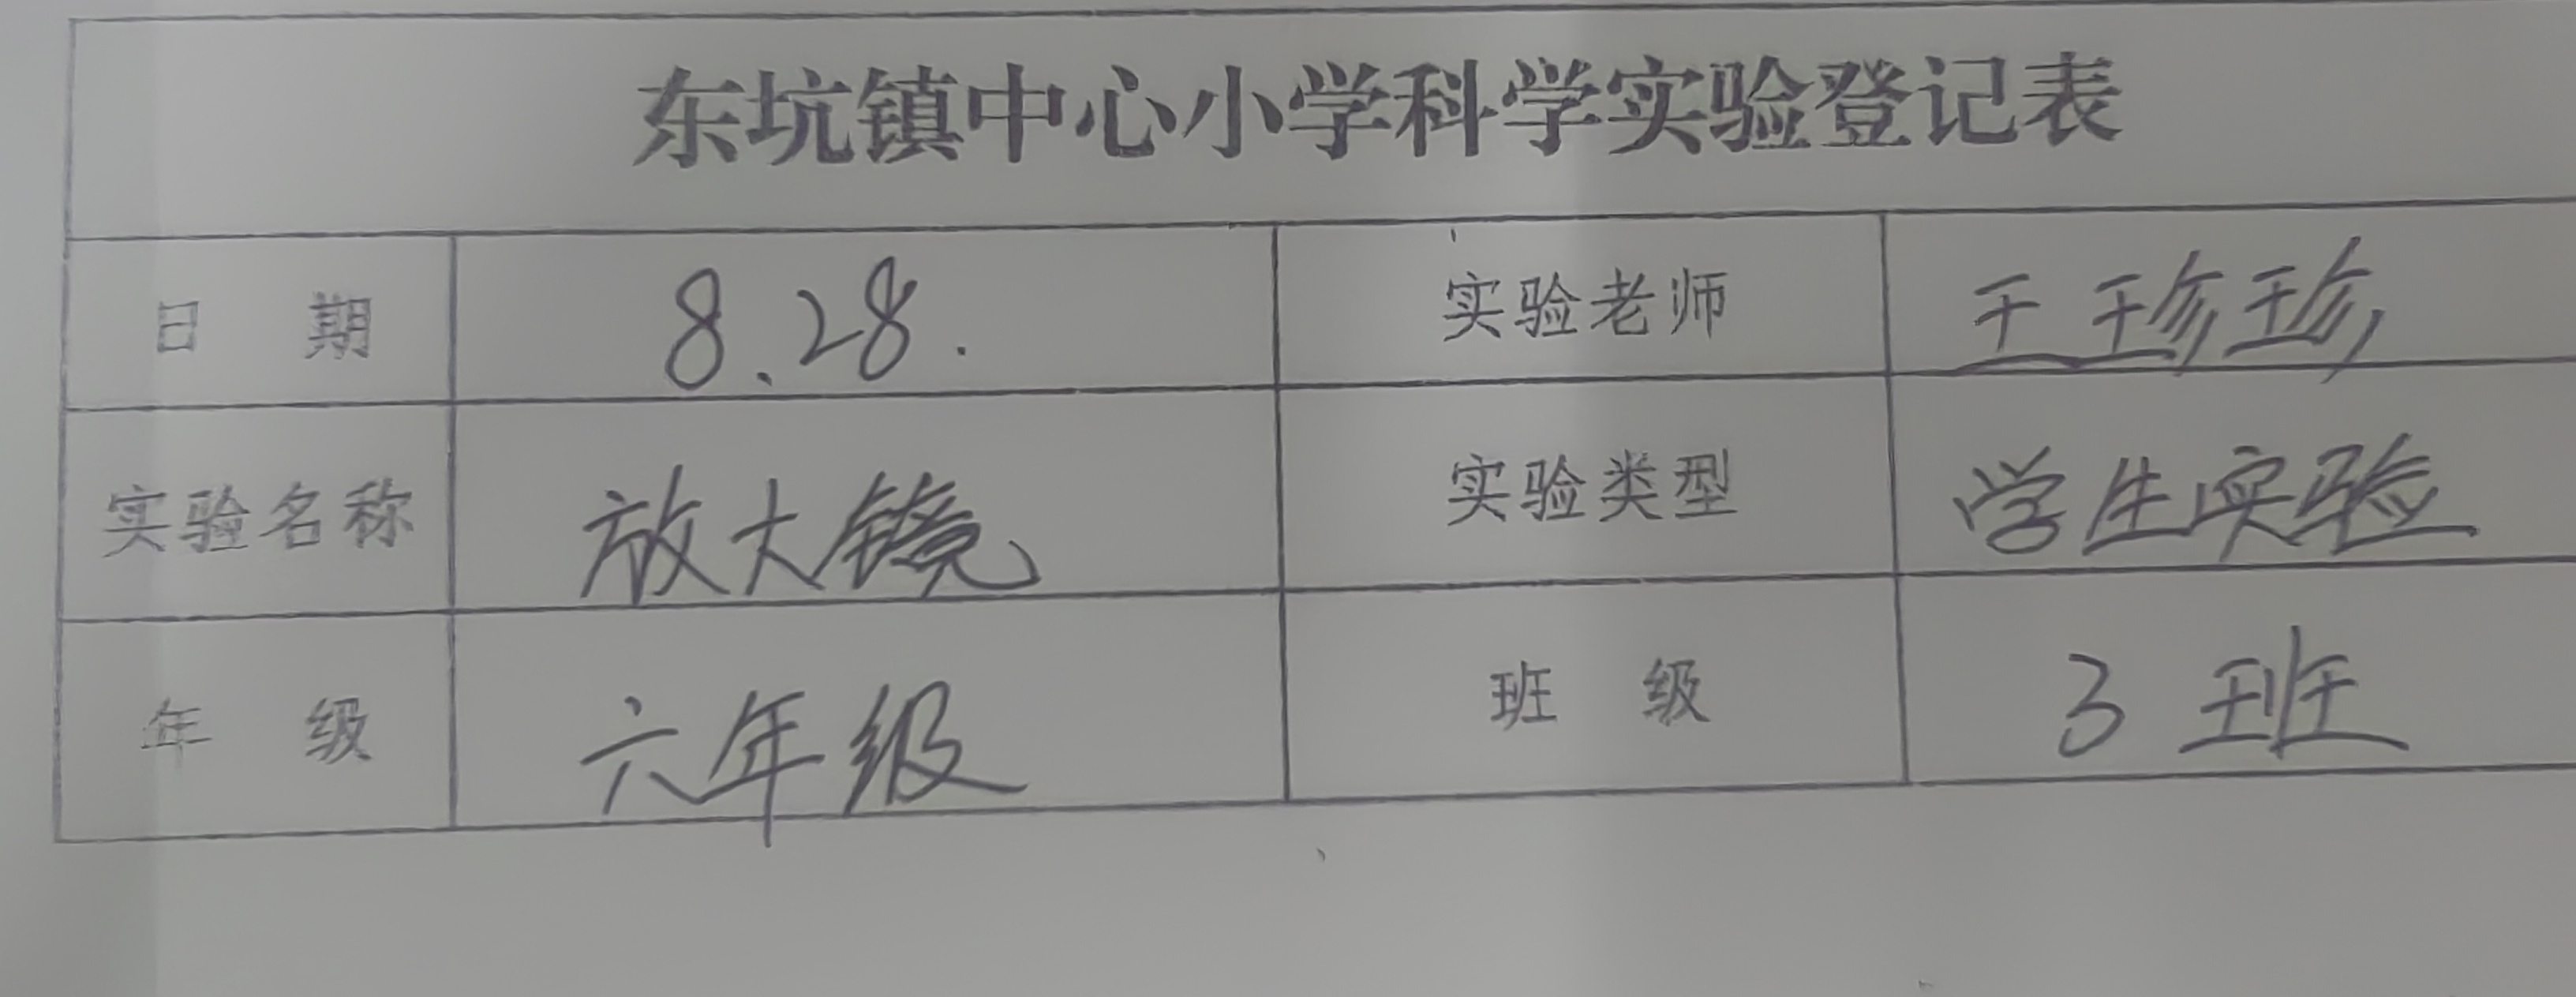 东坑镇中心小学科学实验登记表
日 期 8.28. 实验老师 王珍珍
实验名称 放大镜 实验类型 学生实验
年 级 六年级 班 级 3班